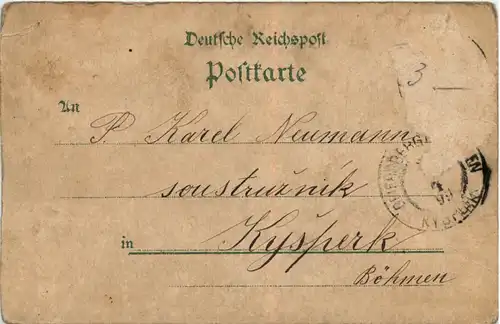 Deutsche Reichspost
Postkarte
3
An P. Karel Neumann
soustružník
in Kysperk
Böhmen
KYSPERK
99